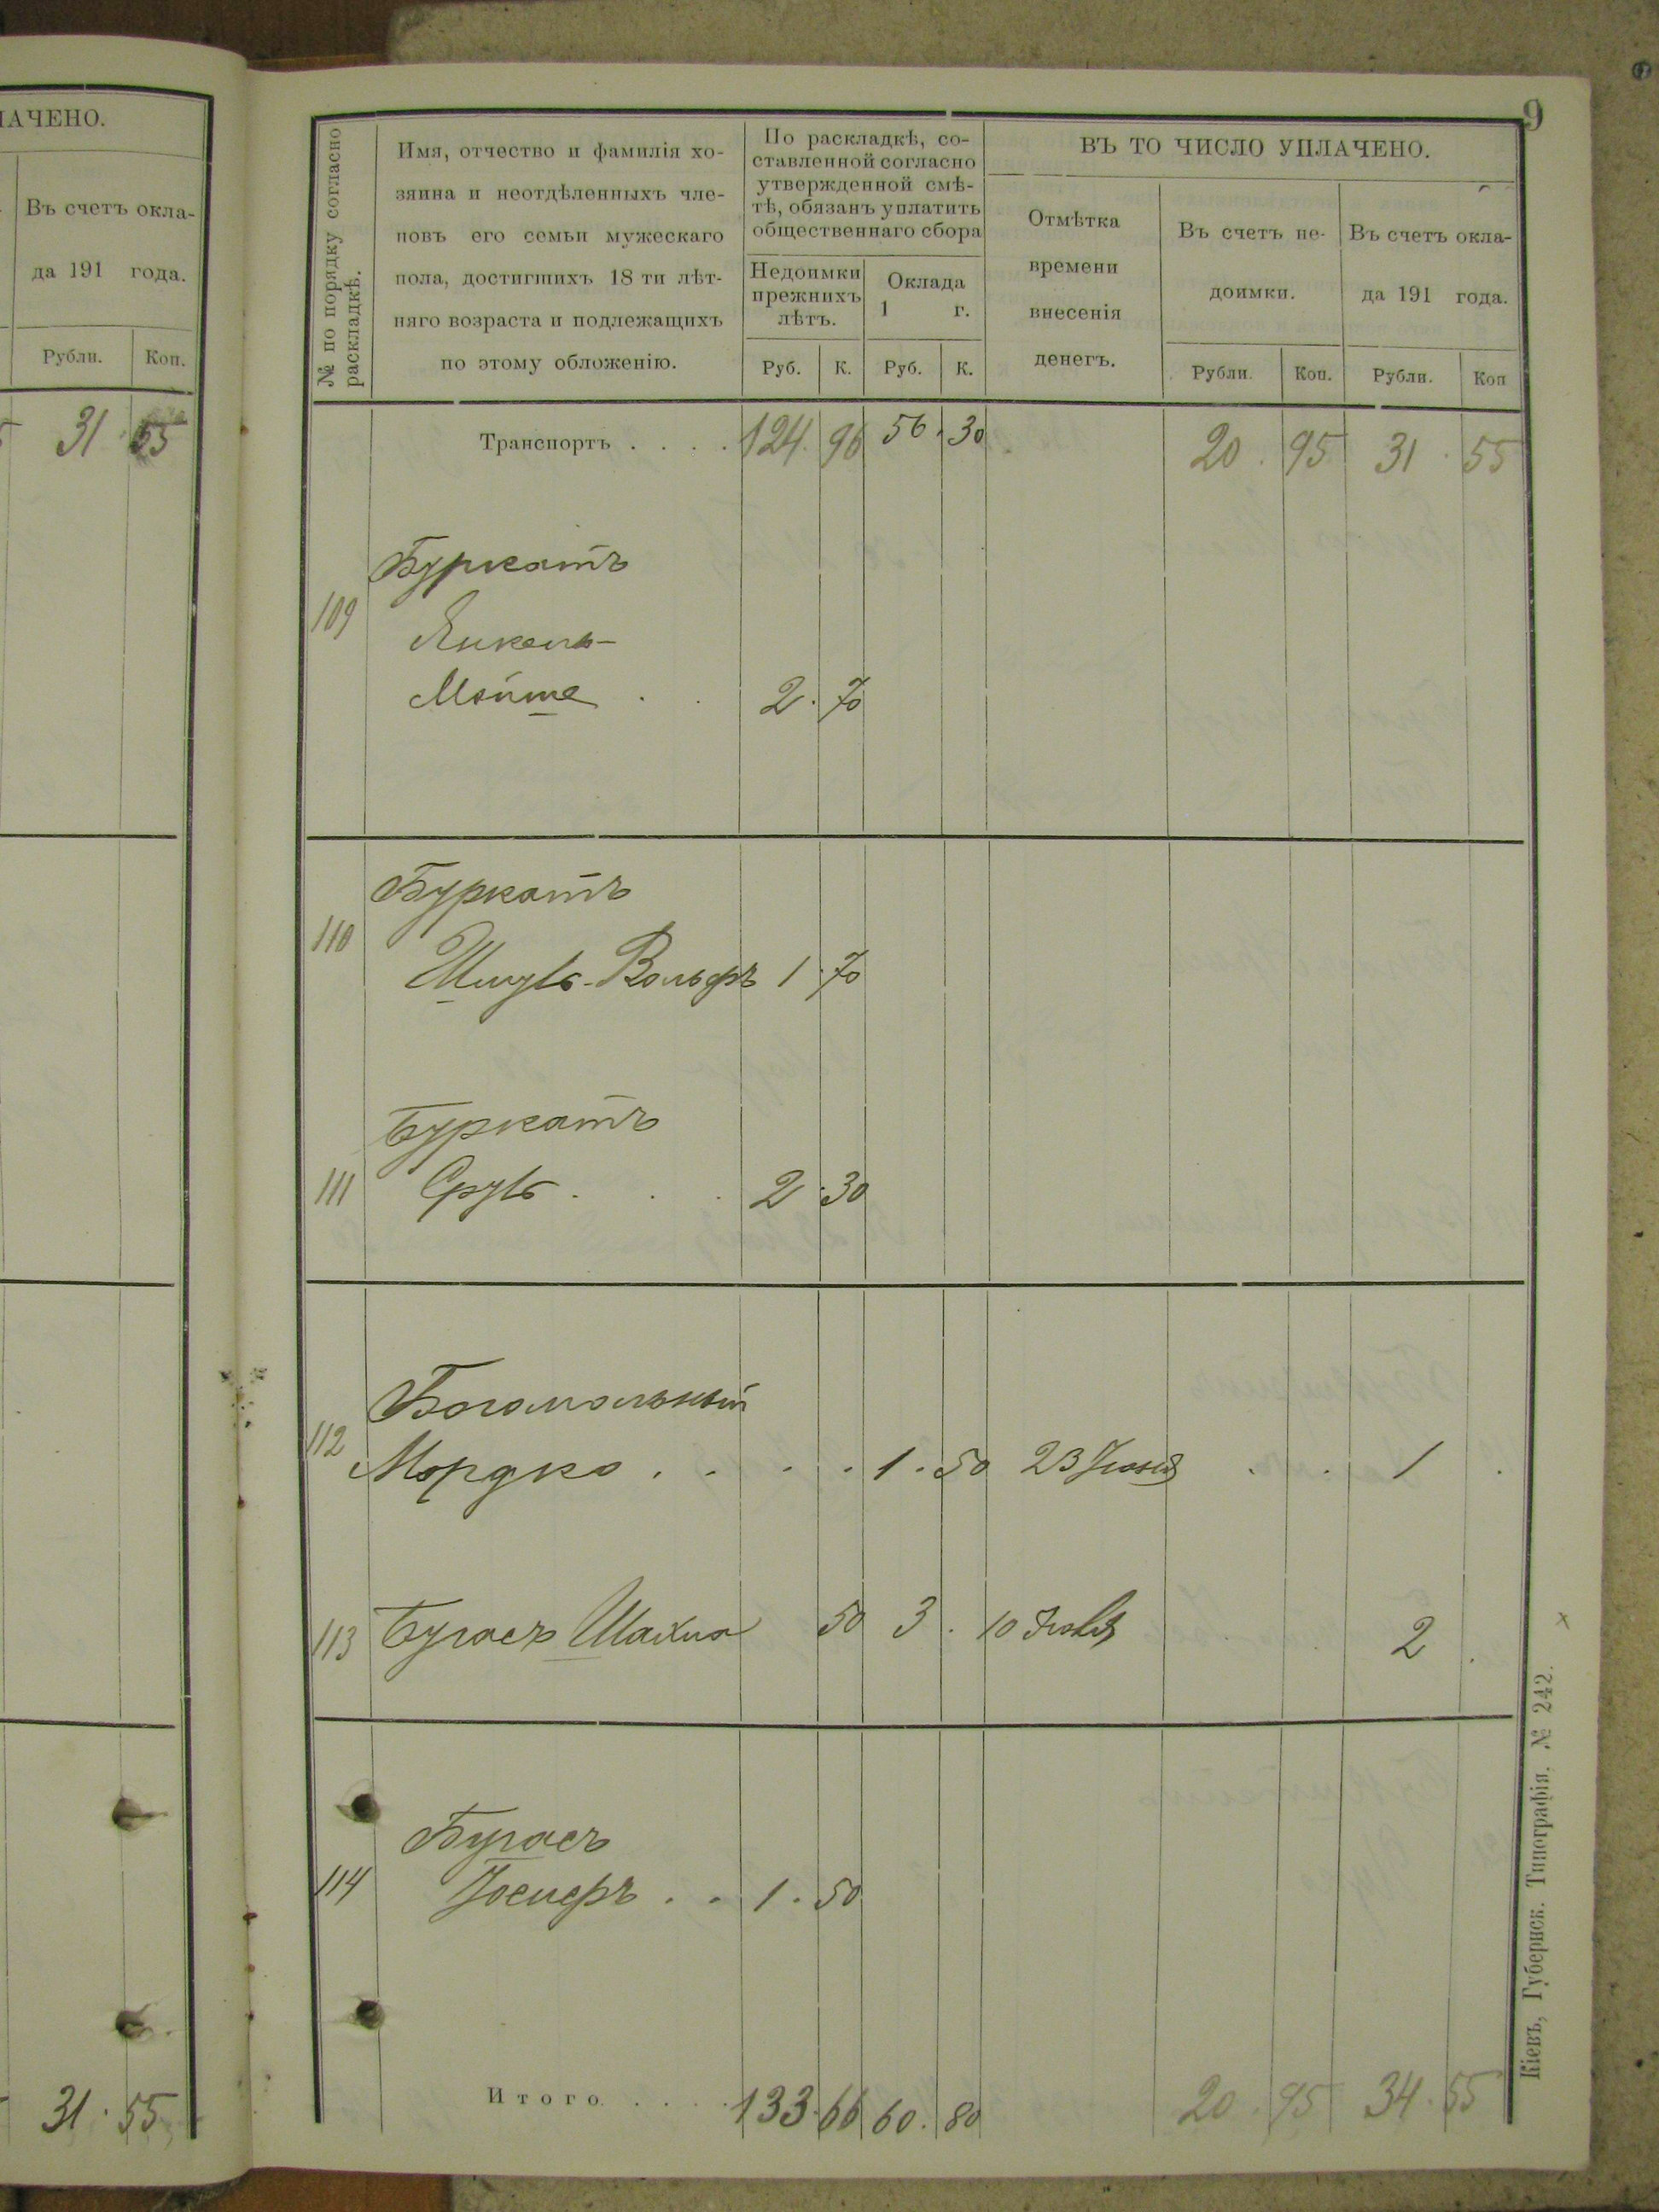 ЛАЧЕНО.
Въ счетъ окла-
да 191 года.
Рубли. Коп.
31 55
31. 55
9
№ по порядку согласно
раскладкѣ.
Имя, отчество и фамилія хо-
зяина и неотдѣленныхъ чле-
новъ его семьи мужескаго
пола, достигшихъ 18 ти лѣт-
няго возраста и подлежащихъ
по этому обложенію.
По раскладкѣ, со-
ставленной согласно
утвержденной смѣ-
тѣ, обязанъ уплатить
общественнаго сбора
Недоимки
прежнихъ
лѣтъ.
Оклада
1 г.
Руб. К. Руб. К.
ВЪ ТО ЧИСЛО УПЛАЧЕНО.
Отмѣтка
времени
внесенія
денегъ.
Въ счетъ не-
доимки.
Рубли. Коп.
Въ счетъ окла-
да 191 года.
Рубли. Коп
Транспортъ . . . . 124. 96 56. 30 20. 95 31. 55
Буркатъ
109
Янкель-
Мойше . . 2. 70
Буркатъ
110
Шмуль-Вольфъ 1. 70
Буркатъ
111 Сруль . . . 2. 30
Богомольный
112 Мордко . . . . 1. 50 23 Іюня . . 1 .
113 Бугаев Шахна 50 3 . 10 . . 2 .
Бугаев
114 Іосифъ . . 1. 50
Итого . . . . 133. 66 60. 80 20. 95 34. 55
Кіевъ, Губернск. Типографія. № 242.